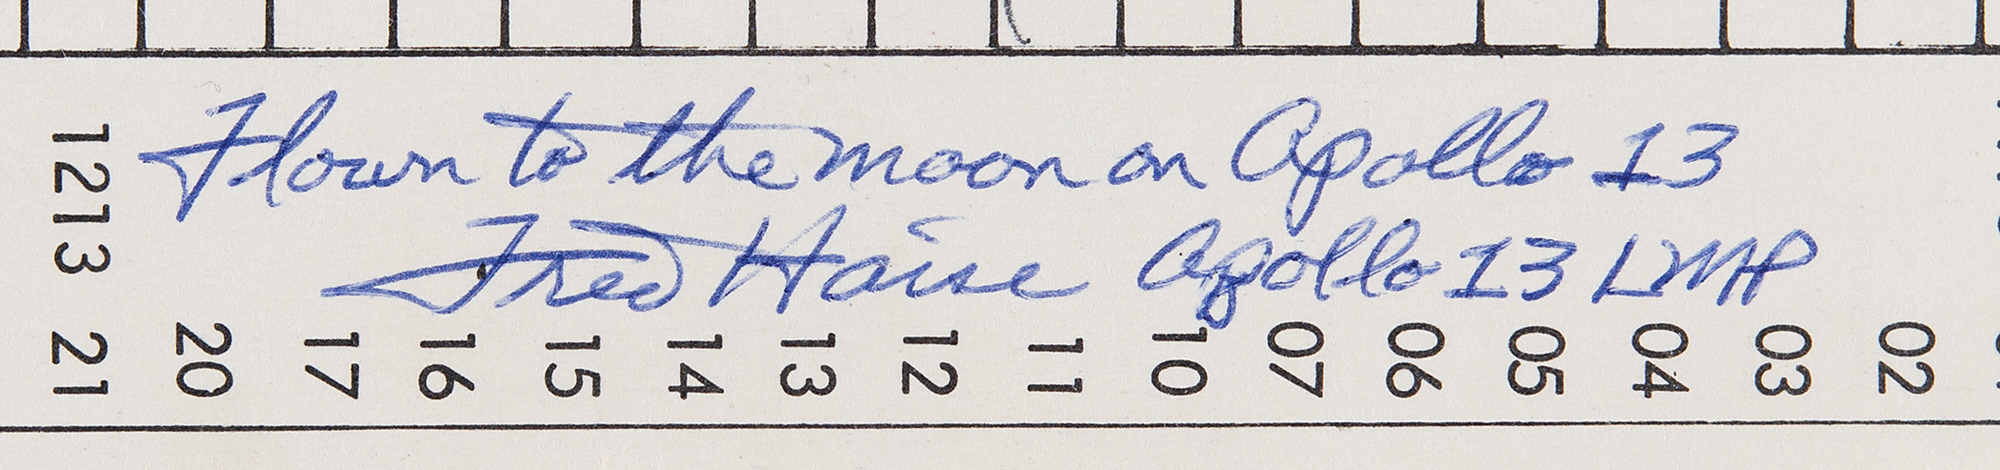 Flown to the moon on Apollo 13
Fred Haise Apollo 13 LMP
1213
21 20 17 16 15 14 13 12 11 10 07 06 05 04 03 02